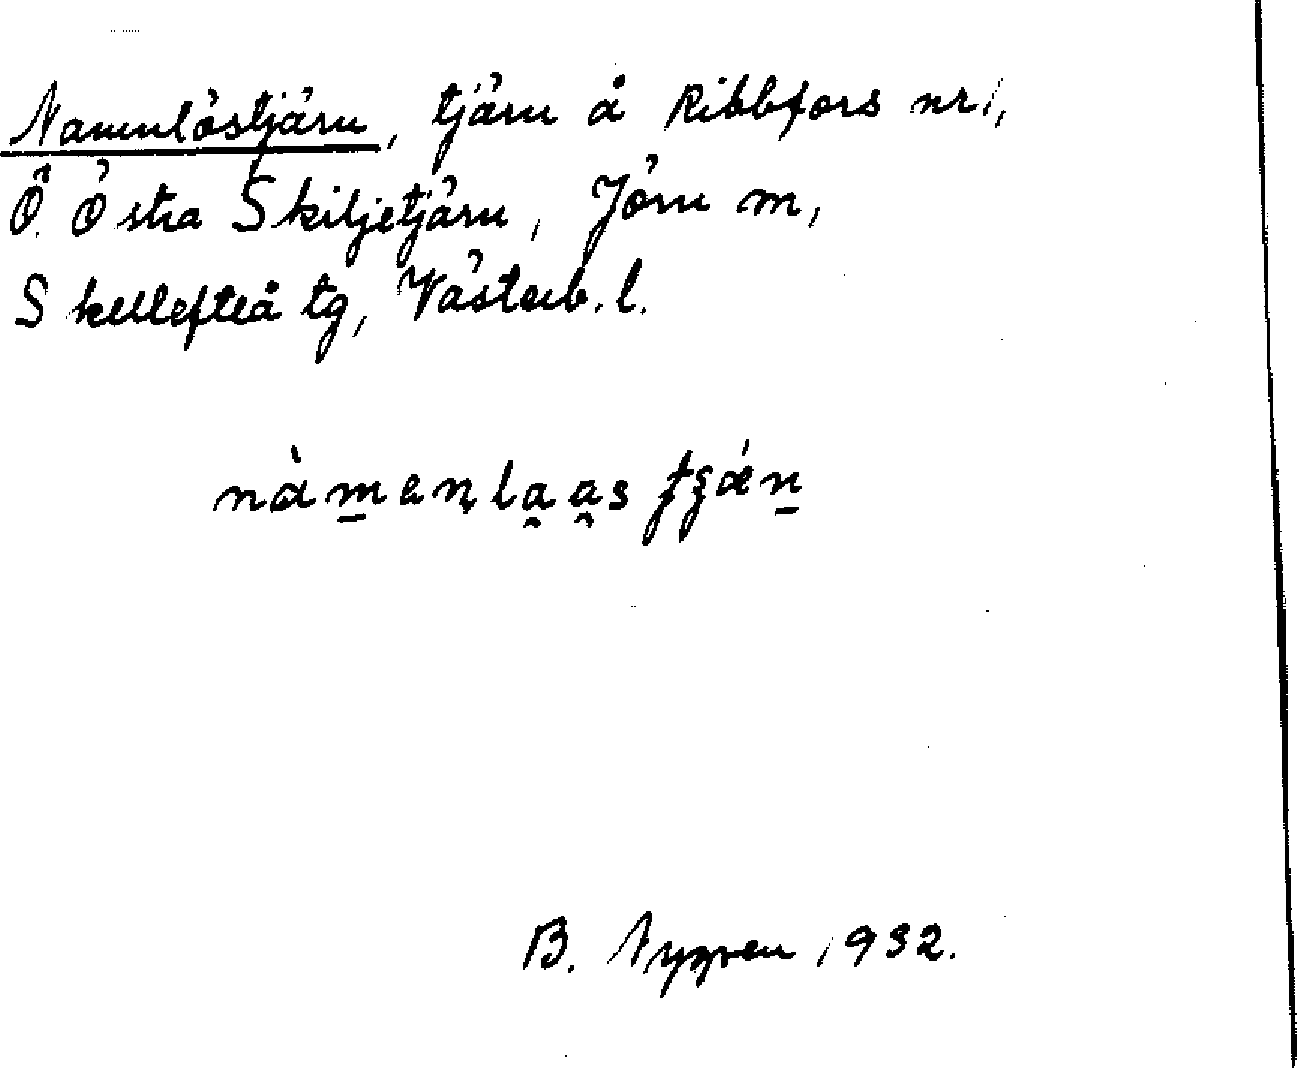 Namnlöstjärn, tjärn å Ribbfors nr 1,
Ö. Östra Skiljetjärn, Jörn sn,
Skellefteå tg, Västerb. l.
nàmenlaas tʂǽn
B. Nygren 1932.